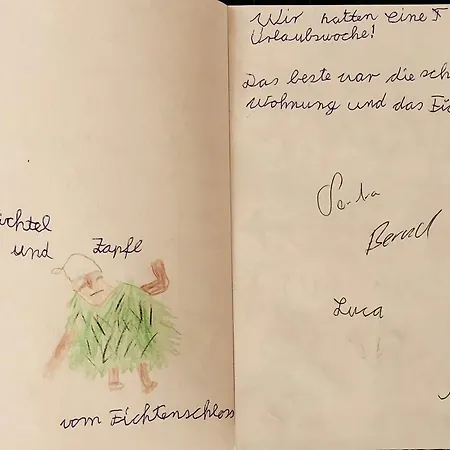 ichtel
und Zapfe
vom Fichtenschloss
Wir hatten eine F
Urlaubswoche!
Das beste war die sch
Wohnung und das Fi
Bernd
Luca